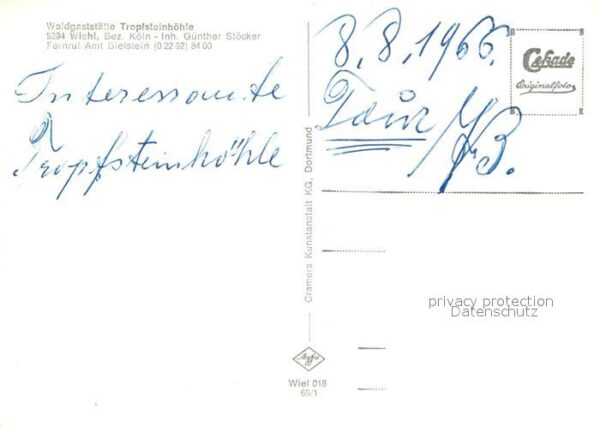 Waldgaststätte Tropfsteinhöhle
5284 Wiehl, Bez. Köln - Inh. Günther Stöcker
Fernruf Amt Bielstein (0 22 62) 84 00
Interessante
Tropfsteinhöhle
8.8.1966.
Tour
B.
Cekade
Originalfoto
Cramers Kunstanstalt KG, Dortmund
privacy protection
Datenschutz
Agfa
Wiel 018
66/1